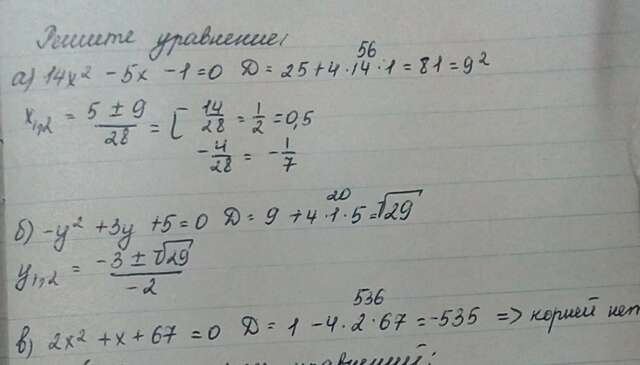 Решите уравнение:
56
а) 14x² - 5x - 1 = 0 D = 25 + 4·14·1 = 81 = 9²
x₁,₂ = (5 ± 9)/28 = [ 14/28 = 1/2 = 0,5
-4/28 = -1/7
20
б) -y² + 3y + 5 = 0 D = 9 + 4·1·5 = √29
y₁,₂ = (-3 ± √29)/-2
536
в) 2x² + x + 67 = 0 D = 1 - 4·2·67 = -535 => корней нет
уравнений: